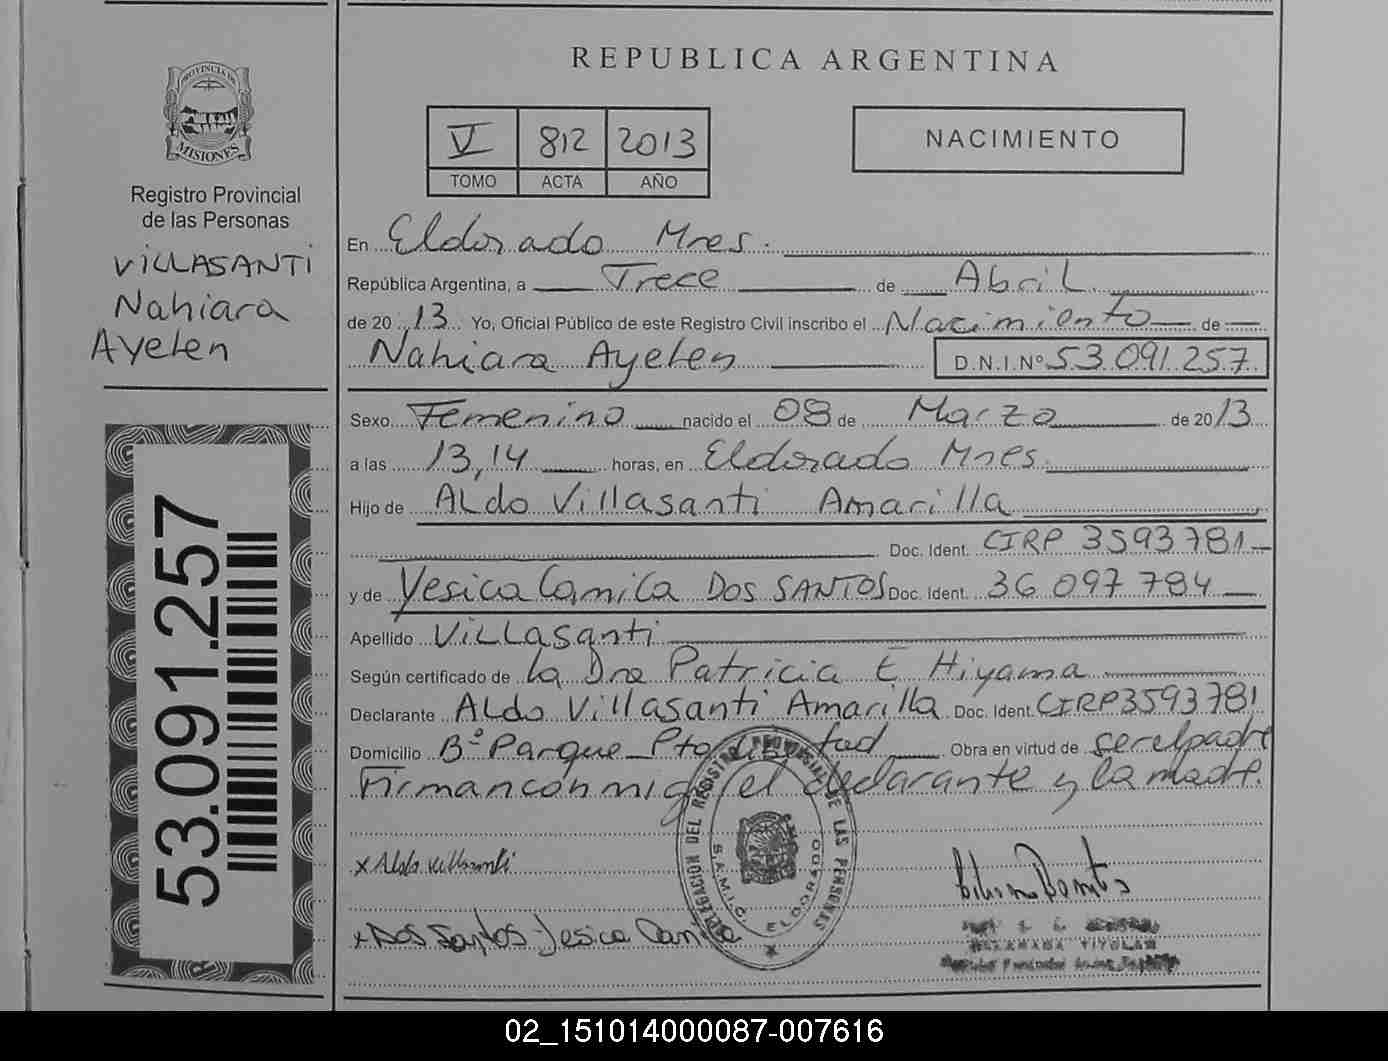 REPUBLICA ARGENTINA
PROVINCIA DE
MISIONES
Registro Provincial
de las Personas
VILLASANTI
Nahiara
Ayelen
53.091.257
V 812 2013
TOMO ACTA AÑO
NACIMIENTO
En Eldorado Mnes.
República Argentina, a Trece de Abril
de 20 13 Yo, Oficial Público de este Registro Civil inscribo el Nacimiento de
Nahiara Ayelen D.N.I. Nº 53.091.257
Sexo Femenino nacido el 08 de Marzo de 20 13
a las 13,14 horas, en Eldorado Mnes.
Hijo de Aldo Villasanti Amarilla
Doc. Ident. CIRP 3593781
y de Yesica Camila DOS SANTOS Doc. Ident. 36 097 784
Apellido Villasanti
Según certificado de la Dra Patricia E Hiyama
Declarante Aldo Villasanti Amarilla Doc. Ident. CIRP3593781
Domicilio Bº Parque Pto Libertad Obra en virtud de ser el padre
Firman conmigo el declarante y la madre.
x Aldo Villasanti
x Dos Santos Jesica Camila
DELEGACION DEL REGISTRO PROVINCIAL DE LAS PERSONAS
S.A.M.I.C. ELDORADO
TITULAR
02_151014000087-007616